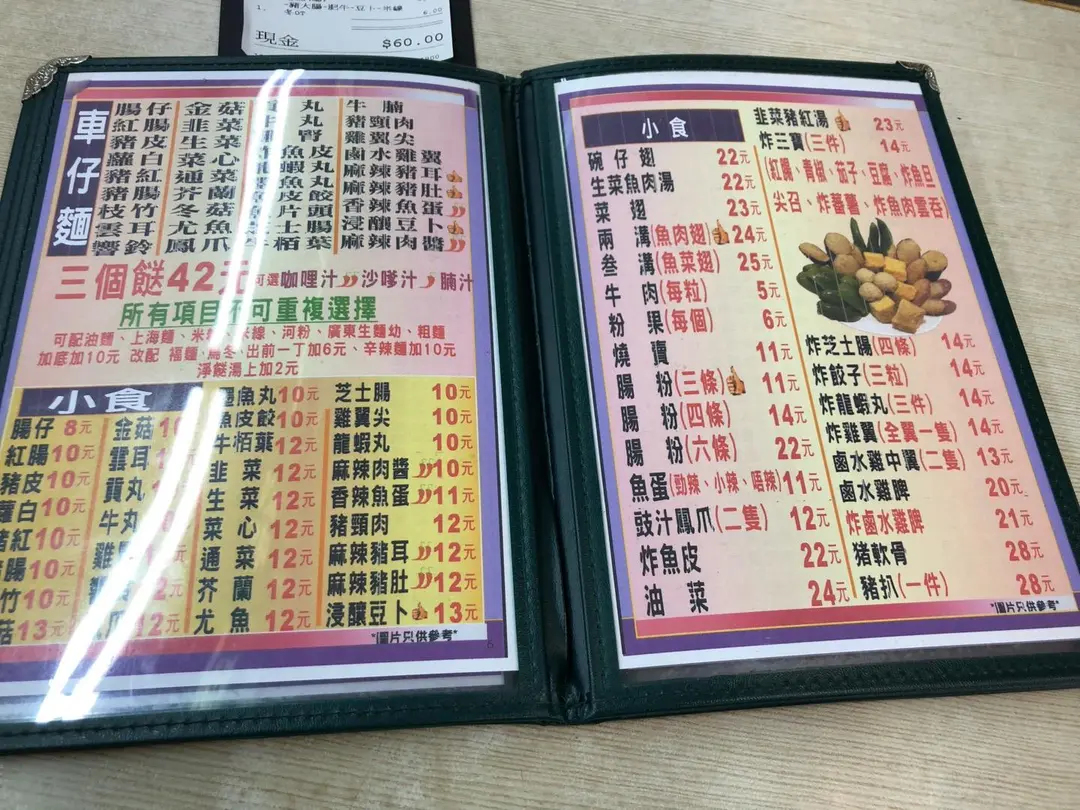 現金 $60.00
車仔麵
腸仔 金菇 丸 牛腩
紅腸 韭菜 丸 豬頸肉
豬皮 生菜 腎 雞翼尖
蘿白 菜心 魚皮 鹵水雞翼
豬紅 通菜 蝦丸 麻辣豬耳
豬腸 芥蘭 魚丸 麻辣豬肚
枝竹 冬菇 皮餃 香辣魚蛋
雲耳 尤魚 片頭 浸釀豆卜
響鈴 鳳爪 麻辣肉醬
三個餸42元 可選咖哩汁 沙嗲汁 腩汁
所有項目不可重複選擇
可配油麵、上海麵、米粉、米線、河粉、廣東生麵幼、粗麵
加底加10元 改配 福麵、烏冬、出前一丁加6元、辛辣麵加10元
淨餸湯上加2元
小食
腸仔 8元
紅腸10元
豬皮10元
白10元
紅10元
腸10元
竹10元
菇13元
金菇10
雲耳
貢丸
牛丸
魚丸10元
魚皮餃10元
牛栢葉12元
韭菜12元
生菜12元
菜心12元
通菜12元
芥蘭12元
尤魚12元
芝士腸 10元
雞翼尖 10元
龍蝦丸 10元
麻辣肉醬 10元
香辣魚蛋 11元
豬頸肉 12元
麻辣豬耳 12元
麻辣豬肚 12元
浸釀豆卜 13元
*圖片只供參考*
小食
碗仔翅 22元
生菜魚肉湯 22元
菜翅 23元
兩溝(魚肉翅) 24元
叁溝(魚菜翅) 25元
牛肉(每粒) 5元
粉果(每個) 6元
燒賣 11元
腸粉(三條) 11元
腸粉(四條) 14元
腸粉(六條) 22元
魚蛋(勁辣、小辣、唔辣) 11元
豉汁鳳爪(二隻) 12元
炸魚皮 22元
油菜 24元
韭菜豬紅湯 23元
炸三寶(三件) 14元
(紅腸、青椒、茄子、豆腐、炸魚旦
尖召、炸蕃薯、炸魚肉雲吞)
炸芝士腸(四條) 14元
炸餃子(三粒) 14元
炸龍蝦丸(三件) 14元
炸雞翼(全翼一隻) 14元
鹵水雞中翼(二隻) 13元
鹵水雞髀 20元
炸鹵水雞髀 21元
豬軟骨 28元
豬扒(一件) 28元
*圖片只供參考*